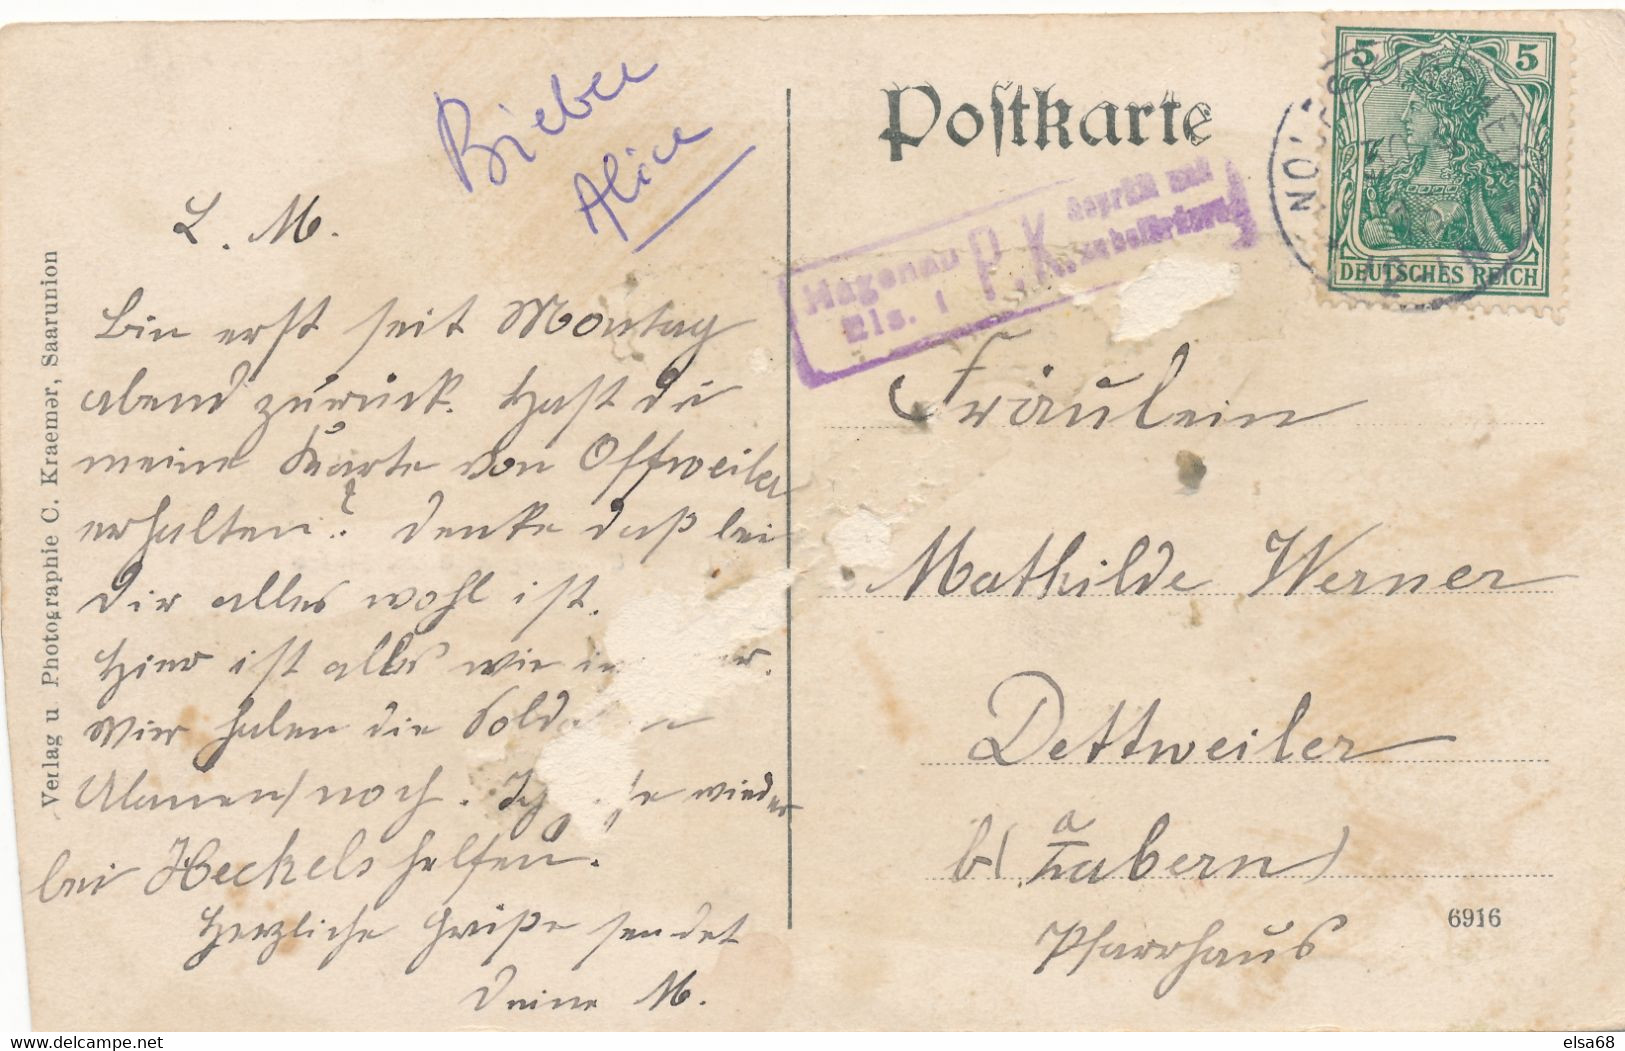 Verlag u Photographie C. Kraemer, Saarunion
Bieber
Alice
L. M.
Bin erst seit Montag
abend zurück. Hast du
meine Karte von Offweiler
erhalten? Denke daß bei
Dir alles wohl ist.
Hier ist alles wie
Wir haben die
Ulanen noch. Ich wieder
bei Heckels helfen.
Herzliche Grüße sendet
Deine M.
Postkarte
Hagenau P.K. Geprüft und
Els. 1
5 5
DEUTSCHES REICH
Fräulein
Mathilde Werner
Dettweiler
b/ Zabern)
Pfarrhaus
6916
www.delcampe.net
elsa68